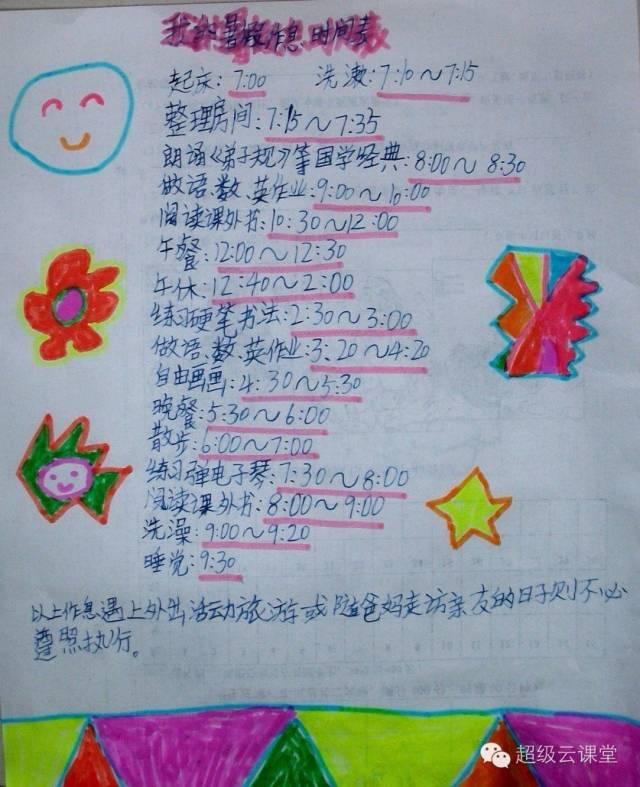 我的暑假作息时间表
起床:7:00 洗漱:7:10~7:15
整理房间:7:15~7:35
朗诵《弟子规》等国学经典:8:00~8:30
做语、数、英作业:9:00~10:00
阅读课外书:10:30~12:00
午餐:12:00~12:30
午休:12:40~2:00
练习硬笔书法:2:30~3:00
做语、数、英作业:3:20~4:20
自由画画:4:30~5:30
晚餐:5:30~6:00
散步:6:00~7:00
练习弹电子琴:7:30~8:00
阅读课外书:8:00~9:00
洗澡:9:00~9:20
睡觉:9:30
以上作息遇上外出活动旅游或随爸妈走访亲友的日子则不必
遵照执行。
超级云课堂